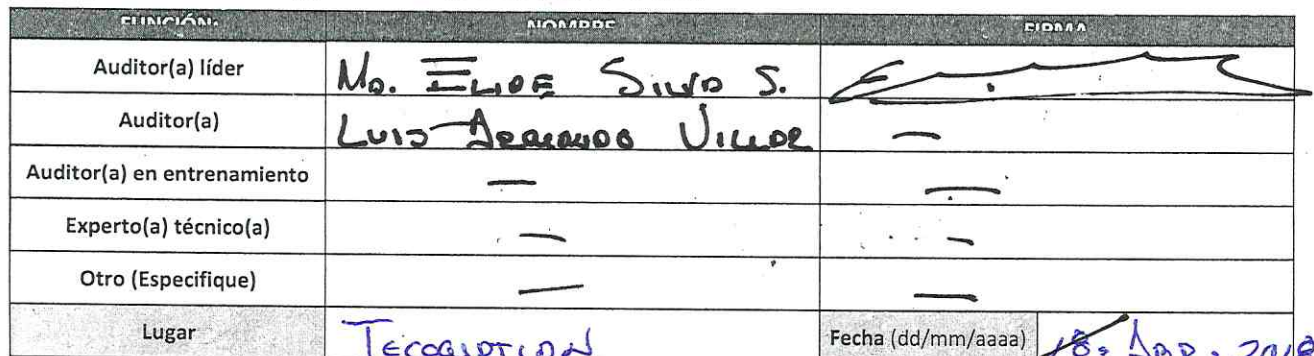 FUNCIÓN: NOMBRE FIRMA
Auditor(a) líder Ma. ELIDE SILVA S.
Auditor(a) LUIS ARMANDO —
Auditor(a) en entrenamiento — —
Experto(a) técnico(a) — —
Otro (Especifique) — —
Lugar Fecha (dd/mm/aaaa) 18.